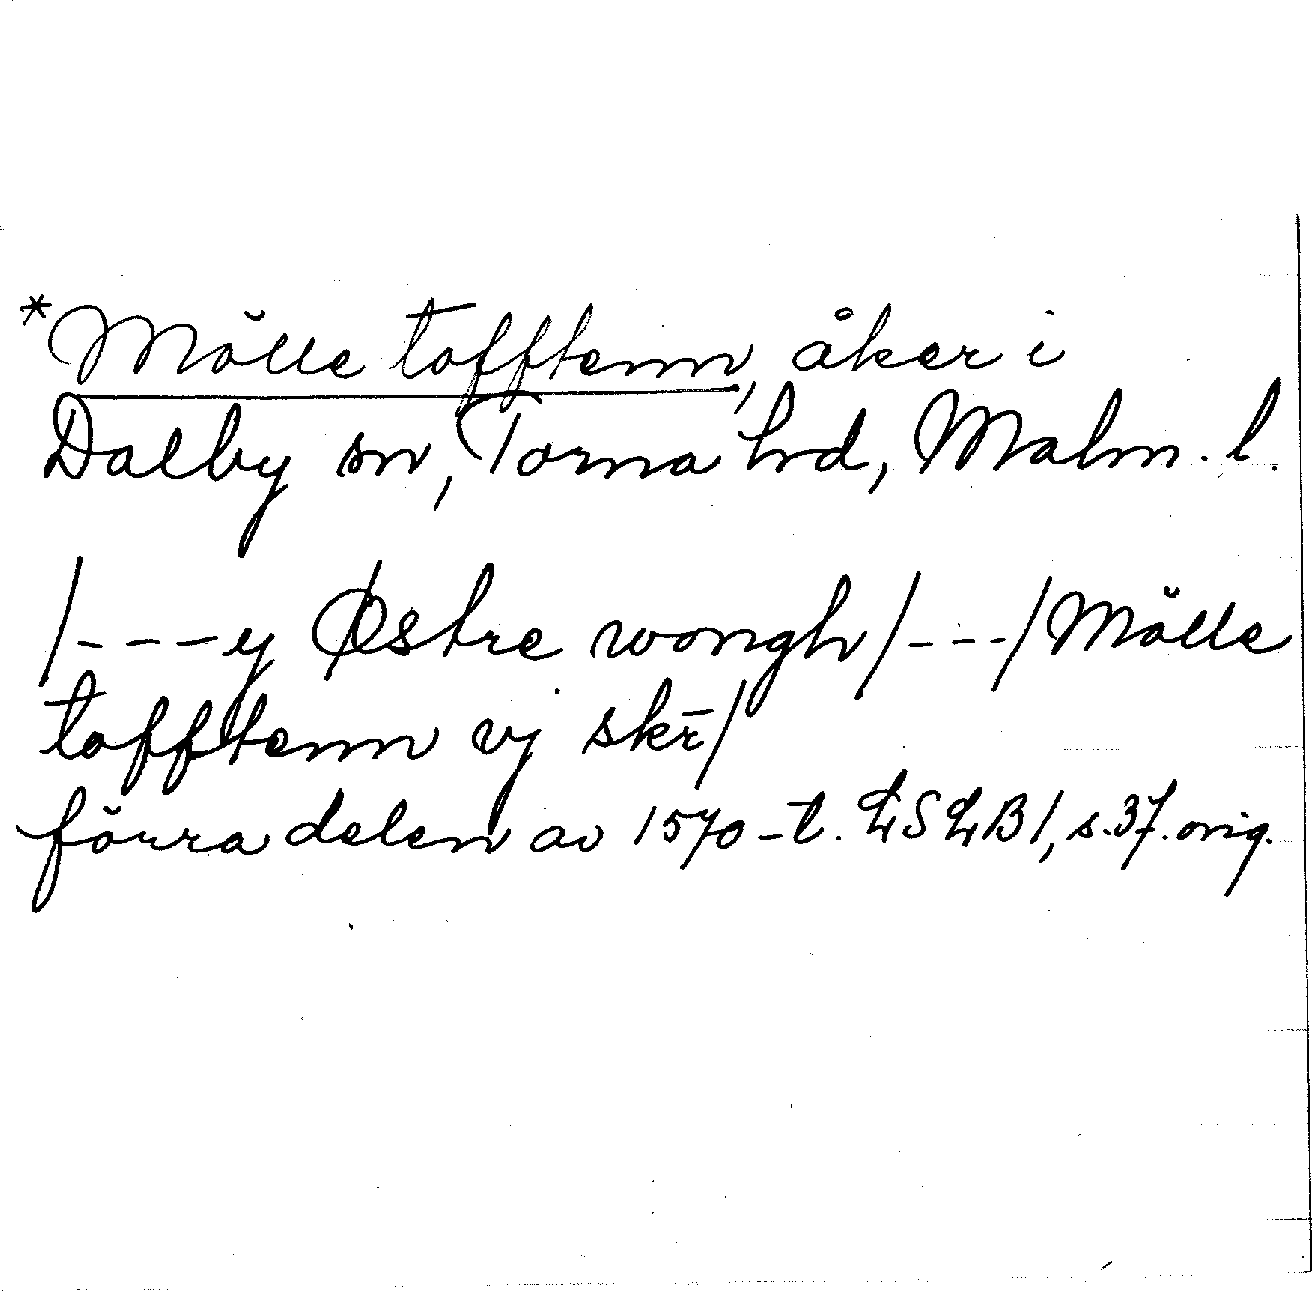 *Mölle tofftenn, åker i
Dalby sn, Torna hd, Malm. l.
/---y Østre wongh/---/Mölle
tofftenn vj skr̄/
förra delen av 1570-t. LSLB1, s.37.orig.